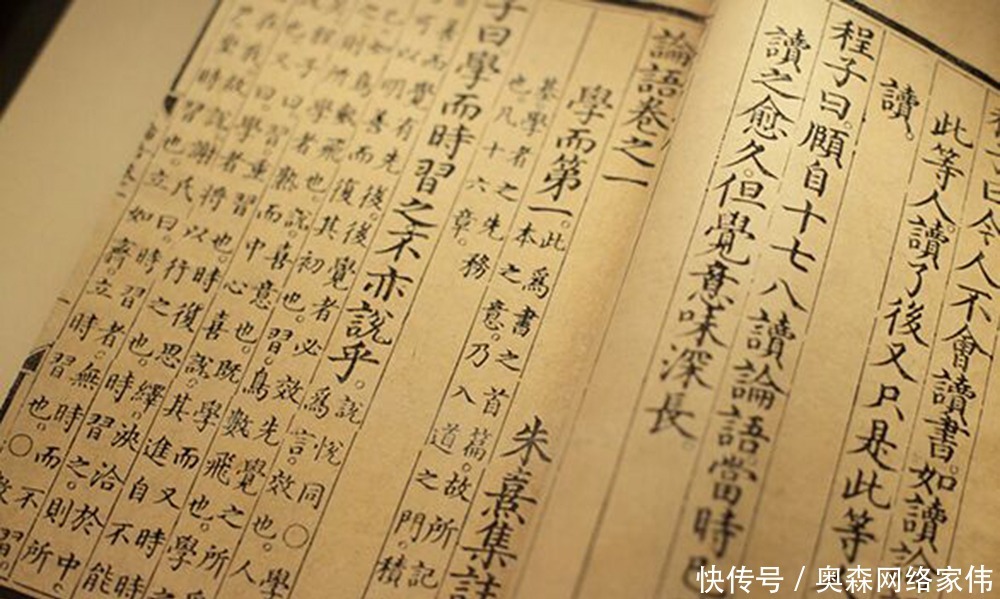 子曰今人不會讀書。如讀論
此等人。讀了後又只是此等
讀。
程子曰。頤自十七八讀論語當時已
讀之愈久。但覺意味深長
論語卷之一
朱熹集註
學而第一。此為書之首篇。故所記
本之意。乃入道之門。積
基學者之先務
也凡十六章。
子曰學而時習之不亦說乎。說悅同○學
為言效也。人
覺有先後。後覺者必效先覺之所
可以明善而復其初也。習鳥數飛也。學
已如鳥數飛也。說喜意也。既學而又時
則所學者熟而中心喜說其進自不能
程子曰習重習也。時復思繹浹洽於中。
也又曰學者將以行之也。時習之則所
在我故說謝氏曰時習者。無時而不習。
坐時習也。立如齊。立時習也。○
快传号 / 奥森网络家伟